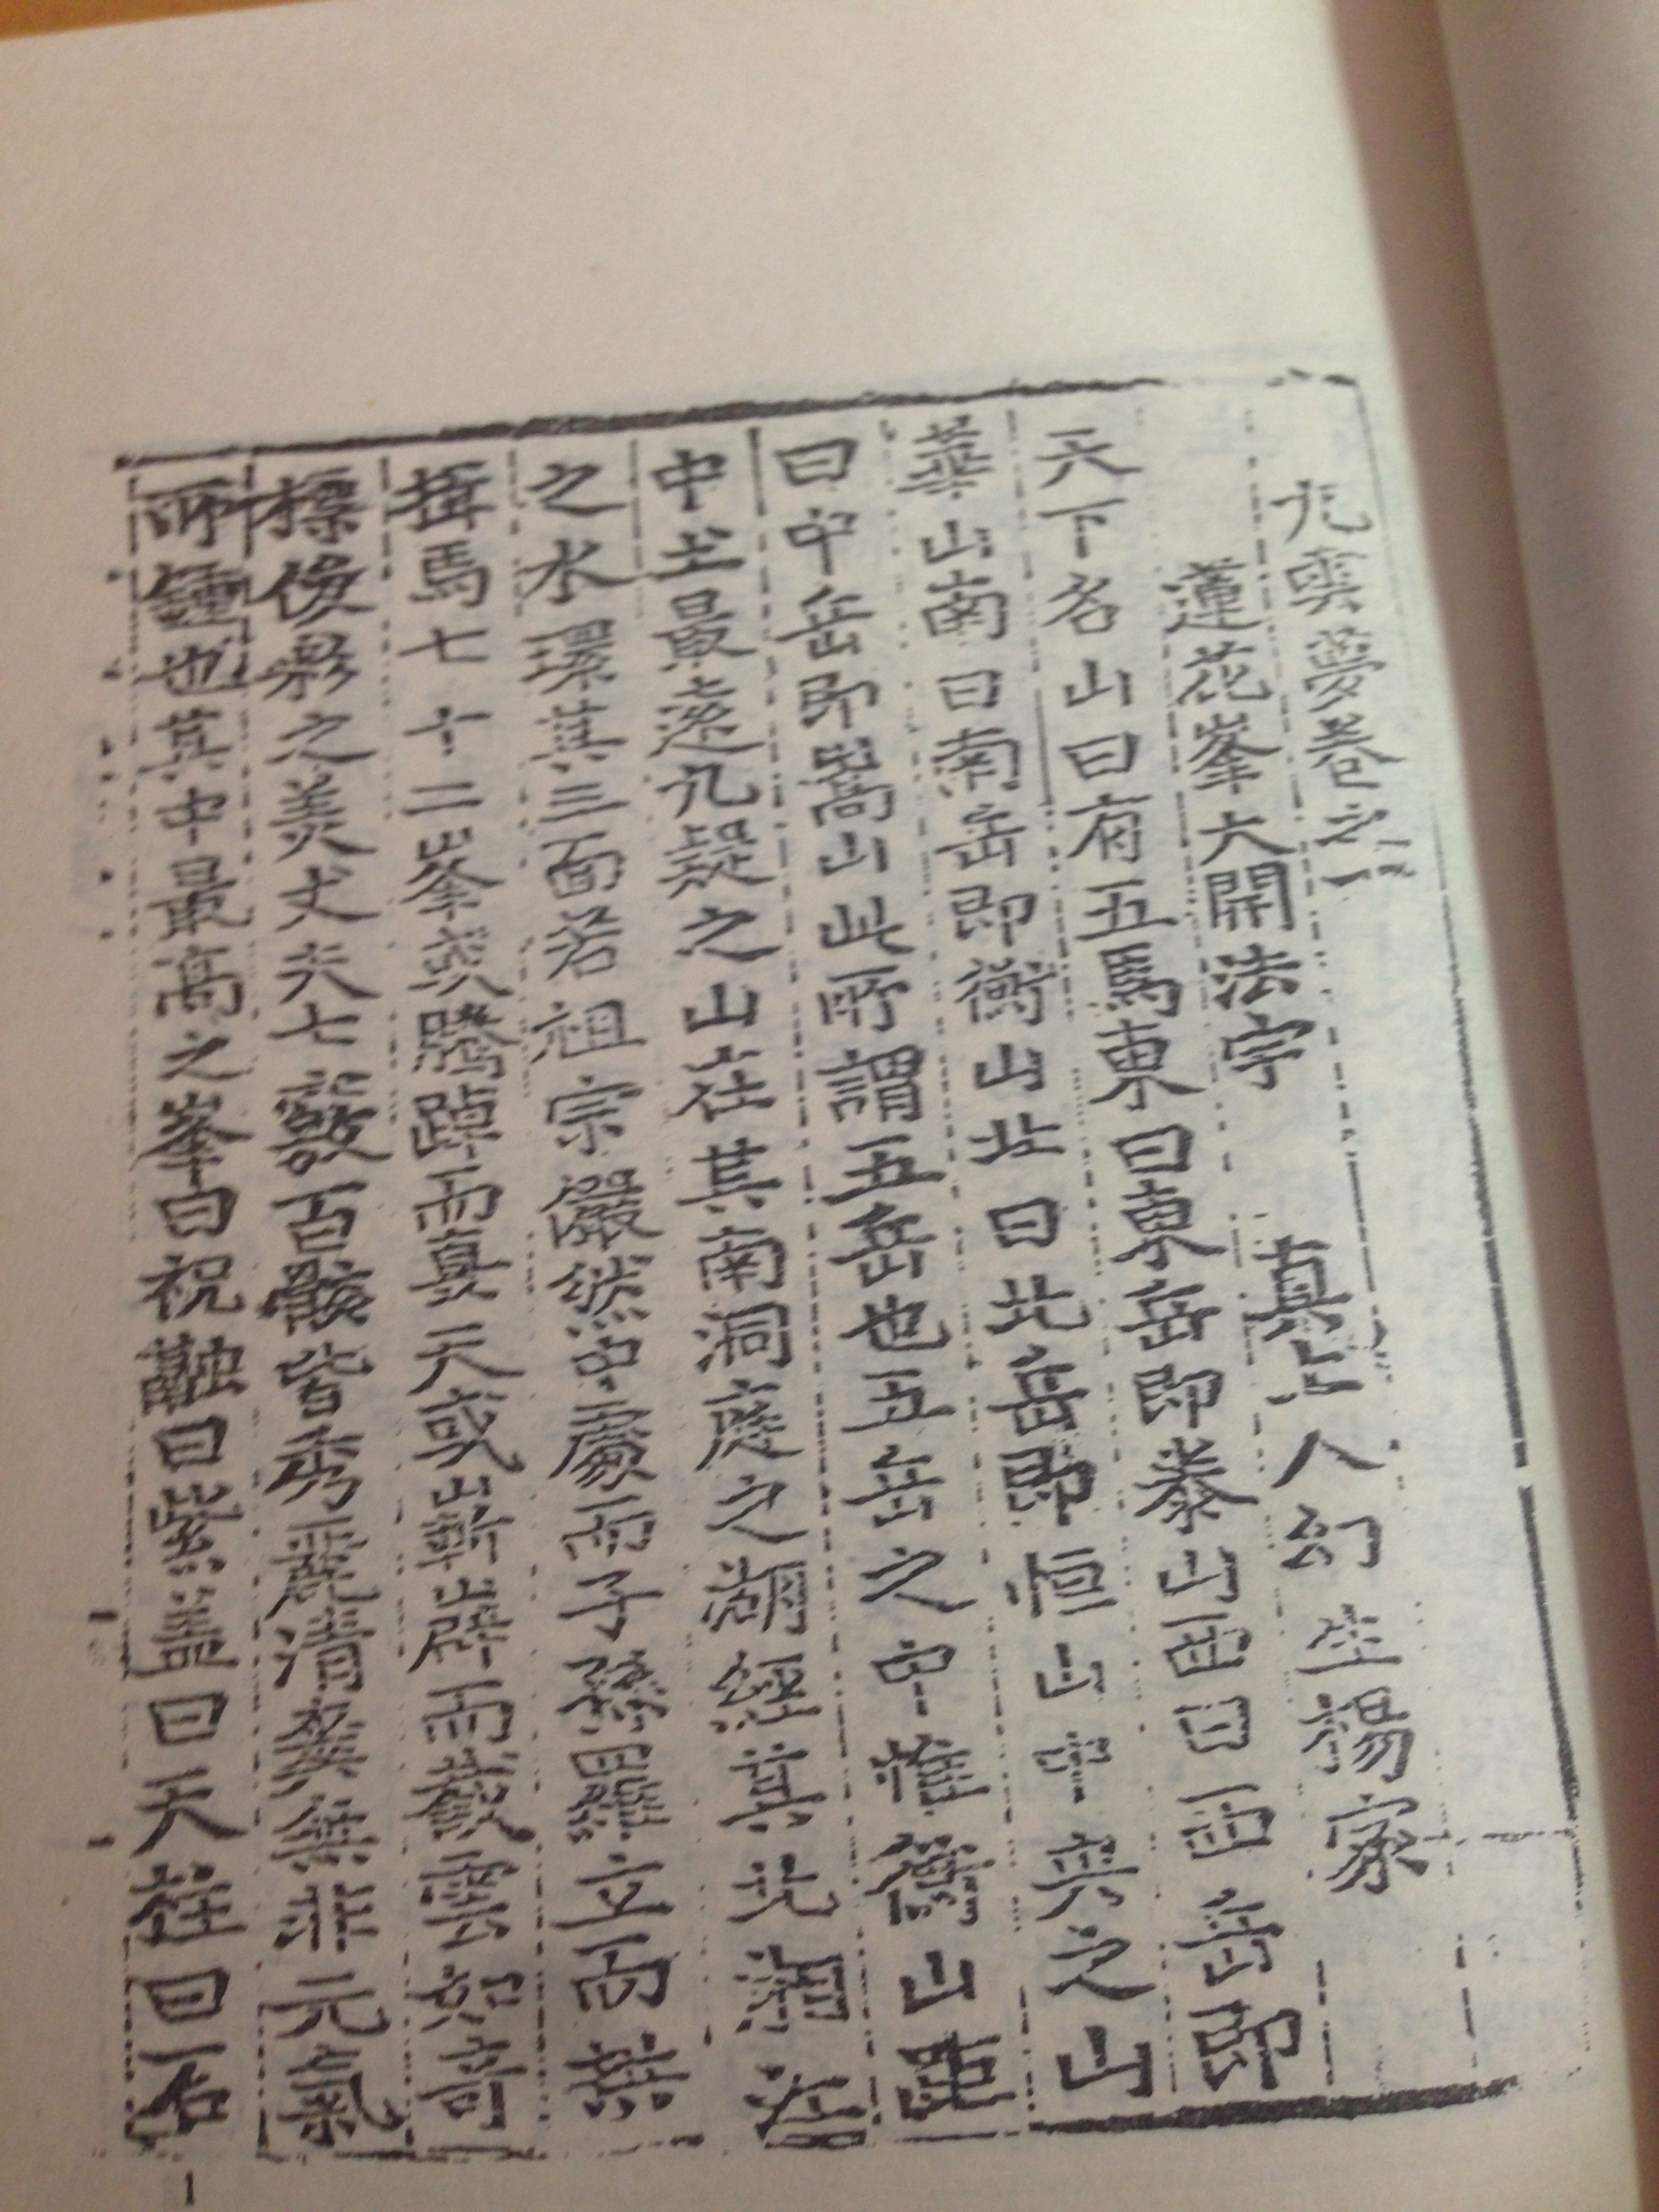 九雲夢卷之一
蓮花峯大開法宇 真上人幻生楊家
天下名山曰有五焉東曰東岳即泰山西曰西岳即
華山南曰南岳即衡山北曰北岳即恒山中央之山
曰中岳即嵩山此所謂五岳也五岳之中惟衡山距
中土最遠九疑之山在其南洞庭之湖經其北湘江
之水環其三面若祖宗儼然中處而子孫羅立而拱
揖焉七十二峯或騰踔而矗天或嶄嶭而截雲如奇
標俊彩之美丈夫七竅百骸皆秀麗清爽無非元氣
所鍾也其中最高之峯曰祝融曰紫盖曰天柱曰石